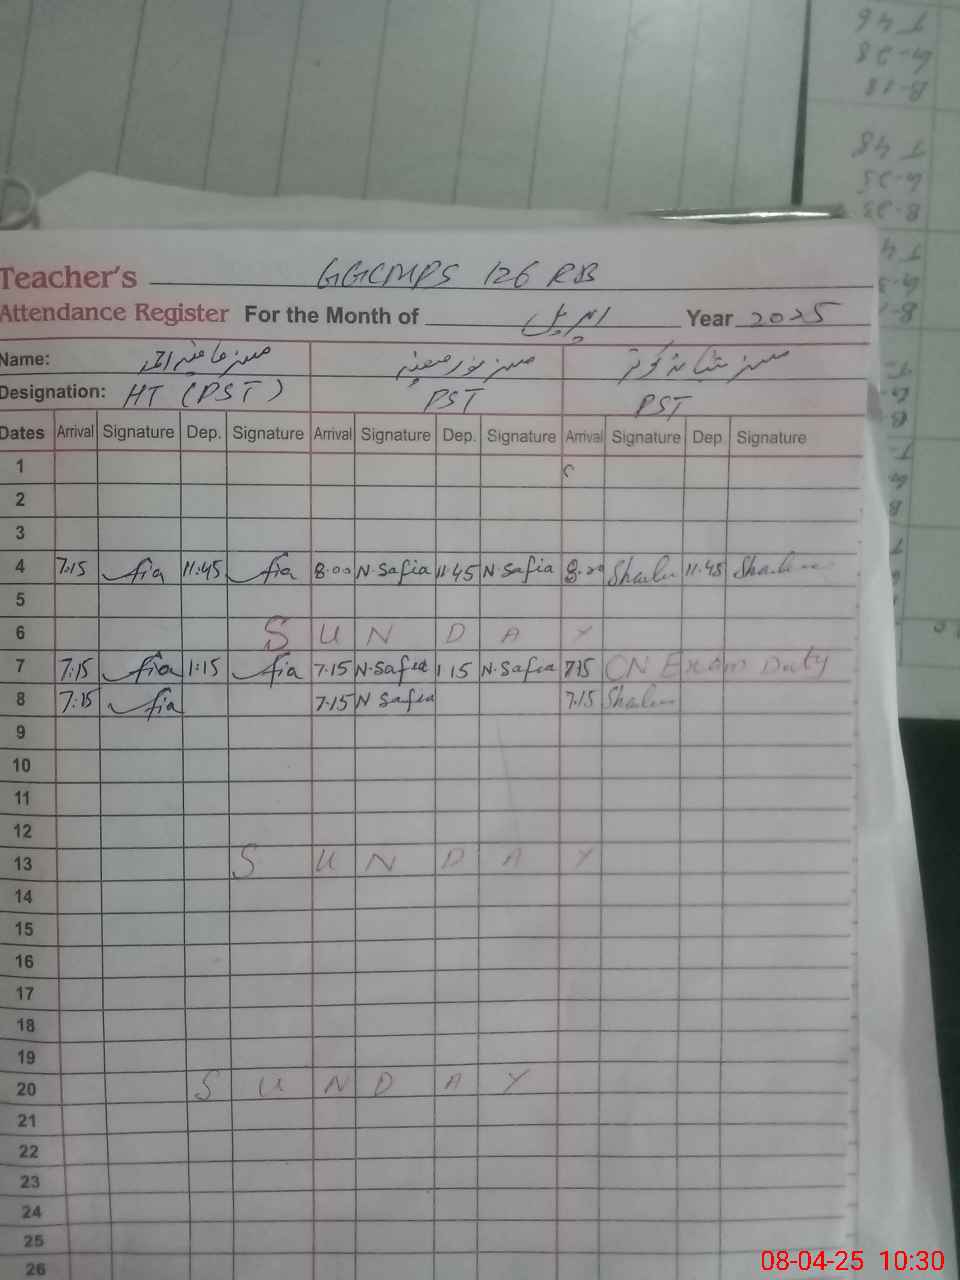 T 46
G-28
B-18
T 48
G-25
B-23
T-4
Teacher's GGCMPS 126 RB
Attendance Register For the Month of اپریل Year 2025
Name: مسز مسز نور صفیہ مسز شبانہ کوثر
Designation: HT (PST) PST PST
Dates Arrival Signature Dep. Signature Arrival Signature Dep. Signature Arrival Signature Dep Signature
1
2
3
4 7:15 fia 11:45 fia 8:00 N.Safia 11:45 N.Safia 11:45
5
6 S U N D A Y
7 7:15 fia 1:15 fia 7:15 N.Safia 1 15 N.Safia 7:15 ON Exam Duty
8 7:15 fia 7:15 N Safia 7:15
9
10
11
12
13 S U N D A Y
14
15
16
17
18
19
20 S U N D A Y
21
22
23
24
25
26
08-04-25 10:30